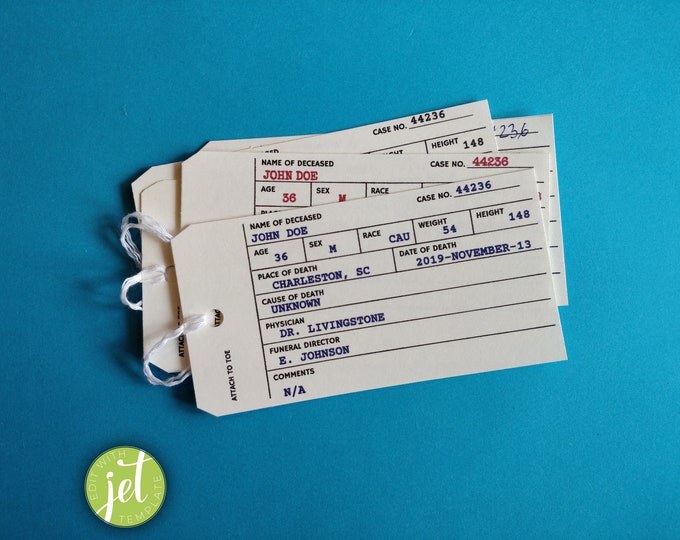 CASE NO. 44236
HEIGHT 148
44236
NAME OF DECEASED
CASE NO. 44236
JOHN DOE
AGE SEX RACE
36 M
NAME OF DECEASED CASE NO. 44236
JOHN DOE
AGE SEX RACE WEIGHT HEIGHT
36 M CAU 54 148
PLACE OF DEATH DATE OF DEATH
CHARLESTON, SC 2019-NOVEMBER-13
CAUSE OF DEATH
UNKNOWN
PHYSICIAN
DR. LIVINGSTONE
FUNERAL DIRECTOR
E. JOHNSON
COMMENTS
N/A
ATTACH TO TOE
EDIT WITH
jet
TEMPLATE